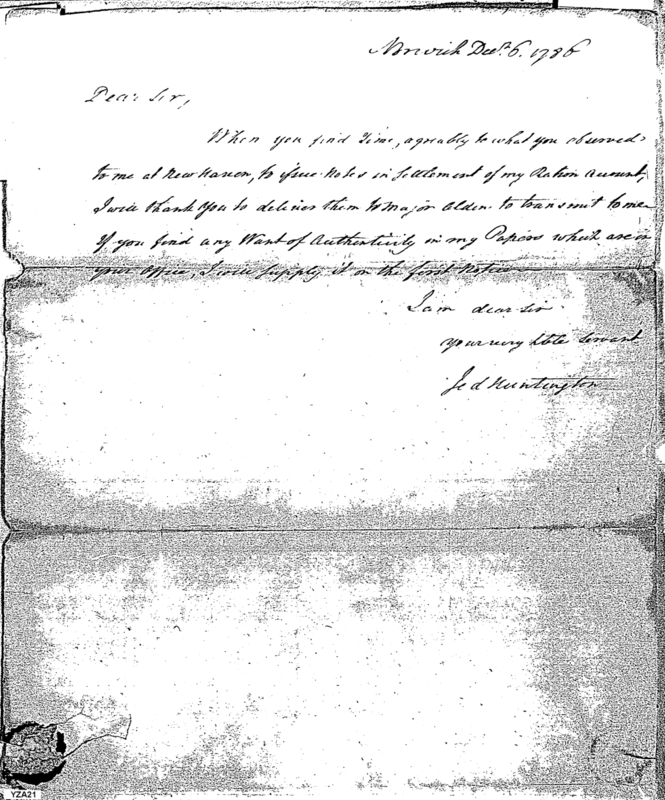 Norwich Decr. 6. 1786
Dear Sir,
When you find Time, agreably to what you observed
to me at New Haven, to issue Notes in Settlement of my Ration Account,
I will thank You to deliver them to Major Alden to transmit to me
If you find any Want of Authenticity in my Papers which are in
your Office, I will supply it on the first Notice
I am dear Sir
your very hble Servant
Jed Huntington
YZA21